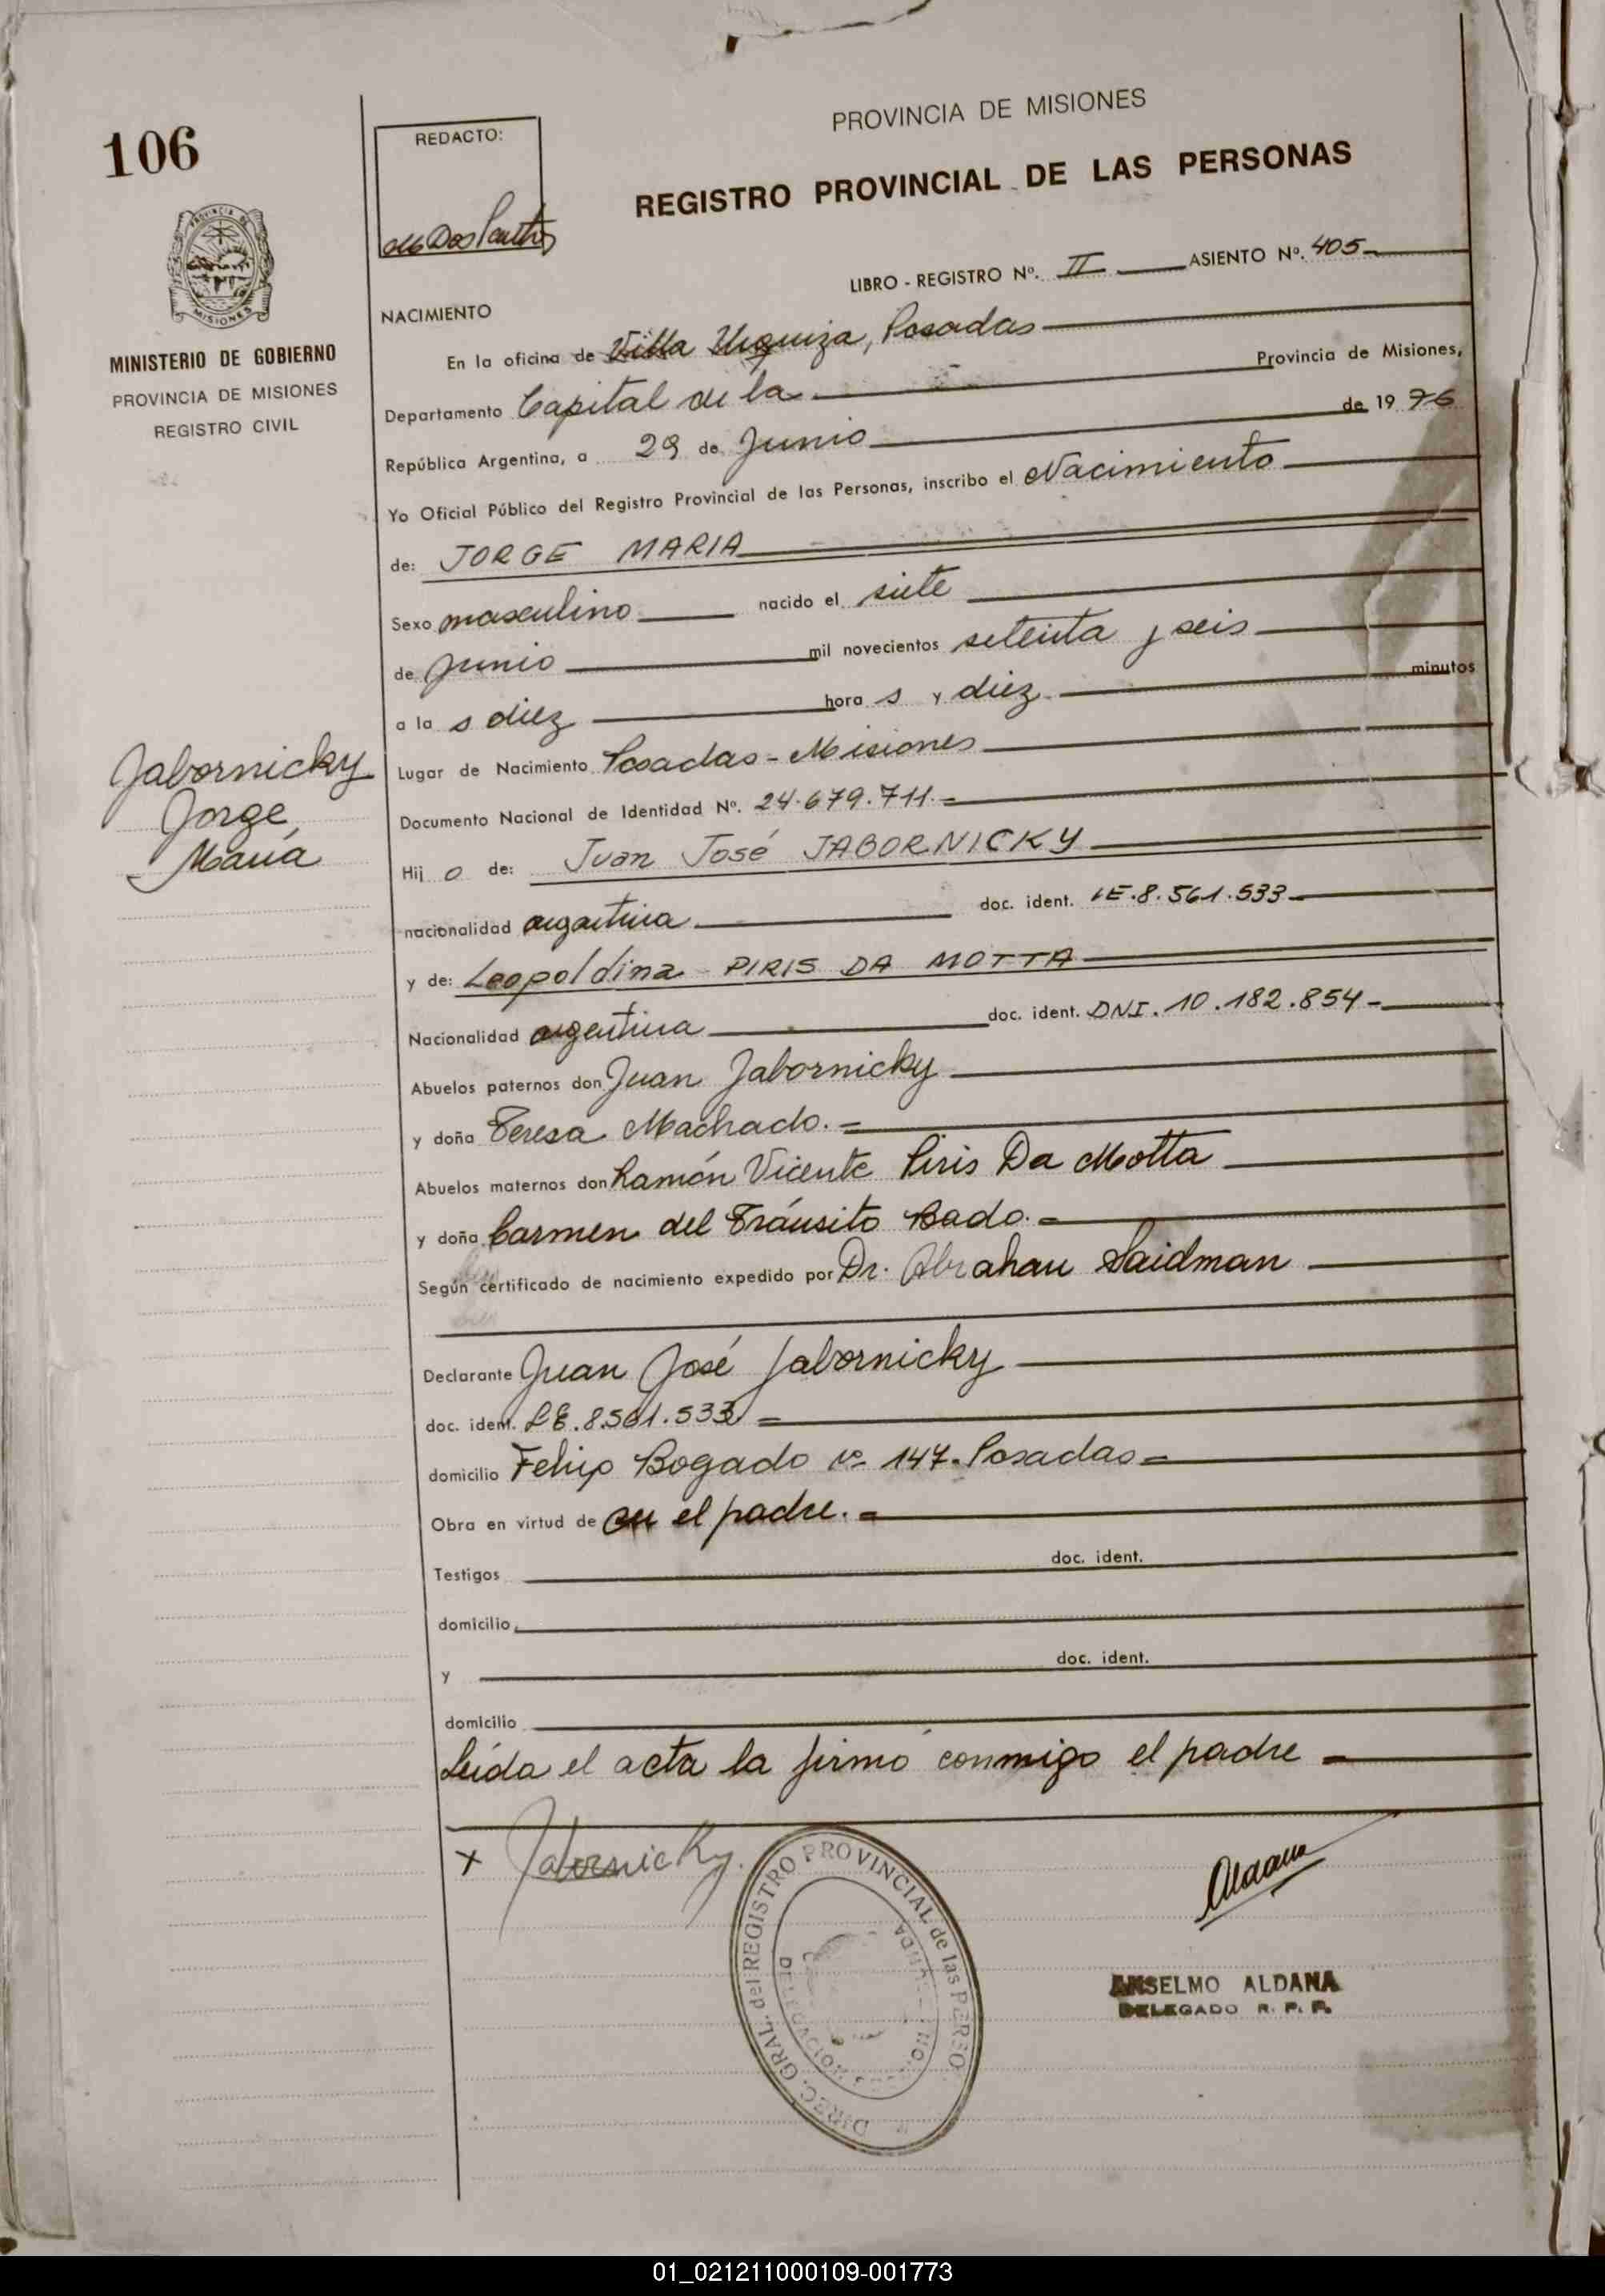 106
REDACTO:
PROVINCIA DE MISIONES
REGISTRO PROVINCIAL DE LAS PERSONAS
PROVINCIA DE
MISIONES
MINISTERIO DE GOBIERNO
PROVINCIA DE MISIONES
REGISTRO CIVIL
LIBRO - REGISTRO Nº. II ASIENTO Nº. 405
NACIMIENTO
En la oficina de Villa Urquiza, Posadas
Departamento Capital de la Provincia de Misiones,
República Argentina, a 29 de Junio de 1976
Yo Oficial Público del Registro Provincial de las Personas, inscribo el Nacimiento
de: JORGE MARIA
Sexo masculino nacido el siete
de Junio mil novecientos setenta y seis
a la s diez hora s y diez minutos
Lugar de Nacimiento Posadas - Misiones
Jabornicky
Jorge
María
Documento Nacional de Identidad Nº. 24.679.711.=
Hij o de: Juan José JABORNICKY
nacionalidad argentina doc. ident. LE.8.561.533
y de: Leopoldina PIRIS DA MOTTA
Nacionalidad argentina doc. ident. DNI. 10.182.854-
Abuelos paternos don Juan Jabornicky
y doña Teresa Machado.=
Abuelos maternos don Ramón Vicente Piris Da Motta
y doña Carmen del Tránsito Bado.=
Según certificado de nacimiento expedido por Dr. Abrahan Saidman
Declarante Juan José Jabornicky
doc. ident. LE.8.561.533 =
domicilio Felix Bogado nº 147. Posadas =
Obra en virtud de ser el padre.=
Testigos doc. ident.
domicilio
y doc. ident.
domicilio
Leída el acta la firmó conmigo el padre =
x Jabornicky.
Aldana
DIREC. GRAL. del REGISTRO PROVINCIAL de las PERSO
ANSELMO ALDANA
DELEGADO R. P. P.
01_021211000109-001773